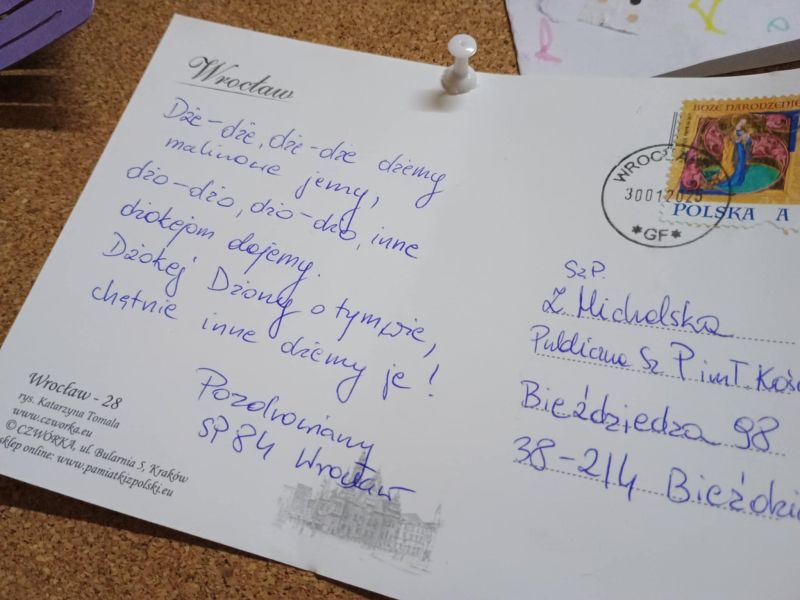 Wrocław
Dże-dże, dże-dże dżemy
malinowe jemy,
dżo-dżo, dżo-dżo, inne
dżokejom dajemy.
Dżokej Dżony o tym wie,
chętnie inne dżemy je!
Pozdrawiamy
SP 84 Wrocław
Wrocław - 28
rys. Katarzyna Tomala
www.czworka.eu
© CZWÓRKA, ul. Bularnia 5, Kraków
sklep online: www.pamiatkizpolski.eu
BOŻE NARODZENIE
POLSKA A
WROCŁA
30012025
*GF*
Sz.P.
Z. Michalska
Publiczna Sz P im T. Kość
Bieździedza 98
38-214 Bieździe